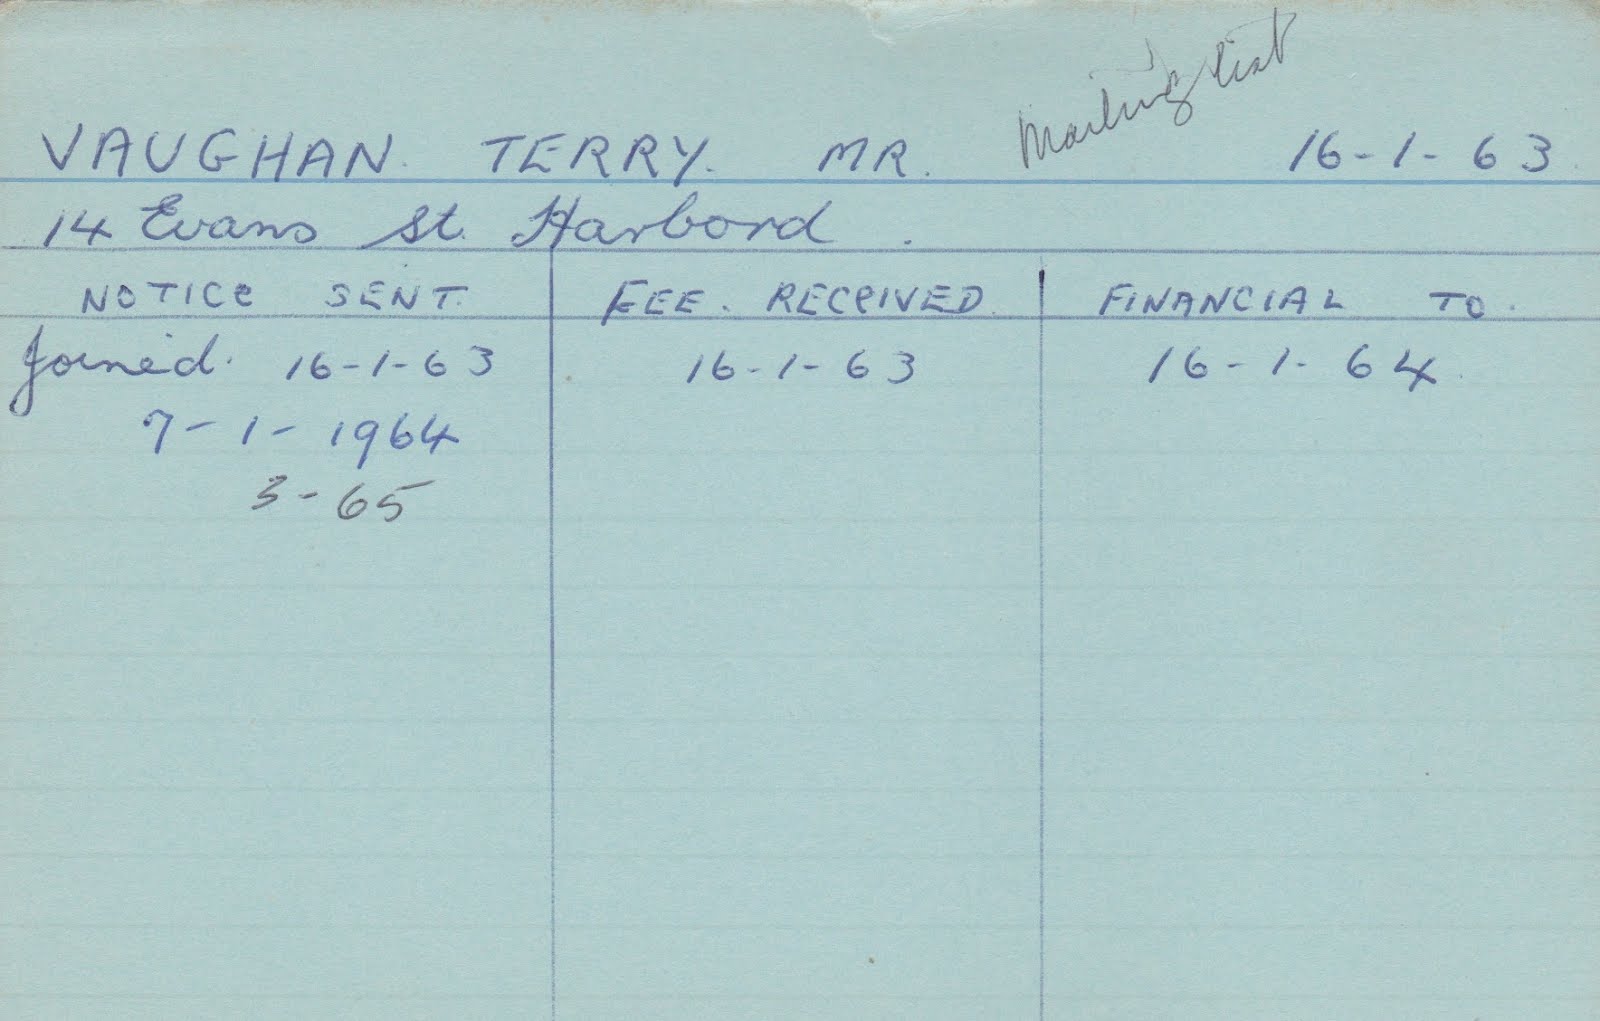 Mailing list
VAUGHAN. TERRY. MR. 16-1-63.
14 Evans St. Harbord.
NOTICE SENT. FEE. RECEIVED. FINANCIAL TO.
Joined. 16-1-63 16-1-63 16-1-64.
7-1-1964
3-65